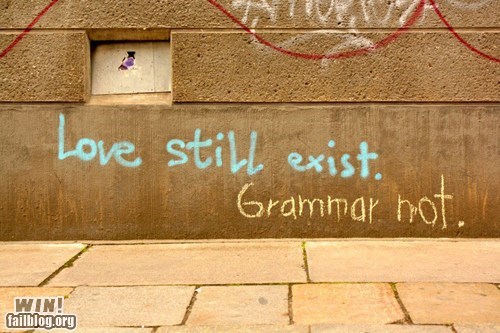 Love still exist.
Grammar not.
WIN!
failblog.org